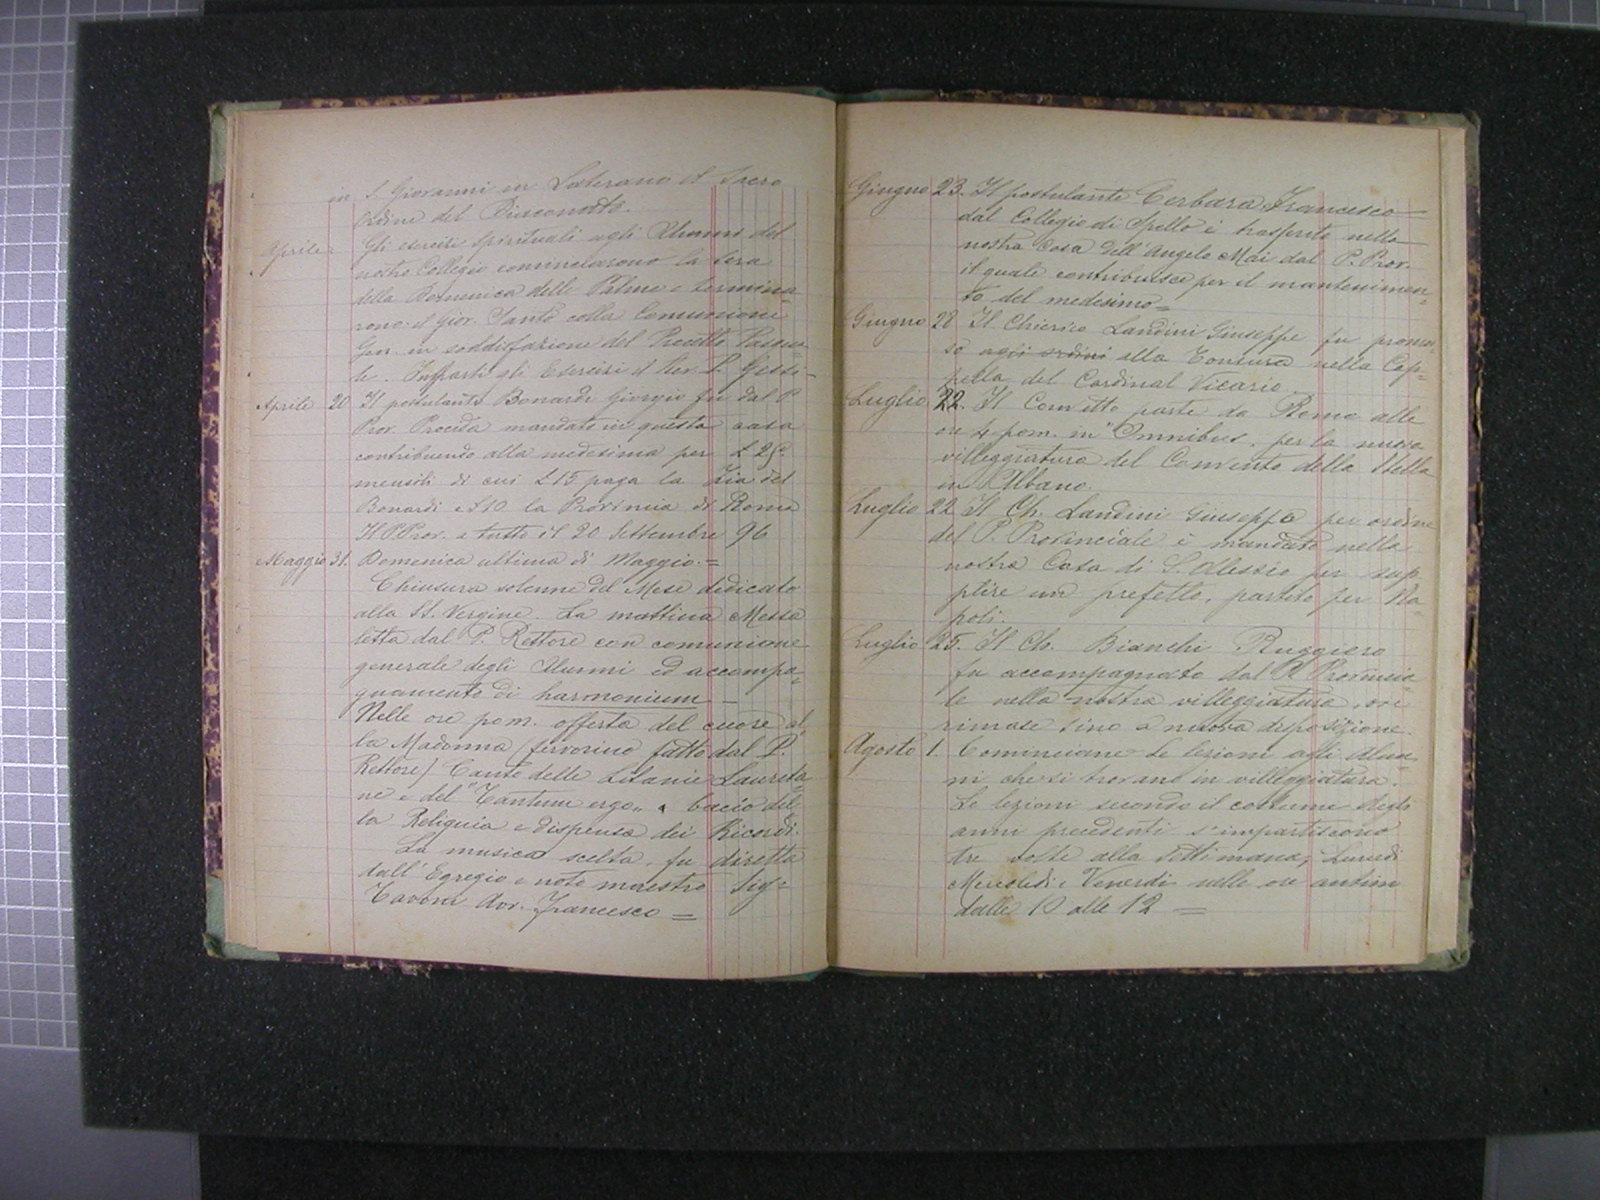 in S. Giovanni in Laterano il Sacro
Ordine del Diaconato.
Aprile Gli esercizi Spirituali agli Alunni del
nostro Collegio cominciarono la sera
della Domenica delle Palme e termina-
rono il Giov. Santo colla Comunione
Gen. in soddisfazione del Precetto Pasqua-
le. Impartì gli Esercizi il Rev. P.
Aprile 20 Il postulante Bonardi Giorgio fu dal P.
Prov. Procida mandato in questa casa
contribuendo alla medesima per £ 25
mensili di cui £15 paga la Zia del
Bonardi e £10 la Provincia di Roma
Il P. Prov. a tutto il 20 Settembre 96
Maggio 31. Domenica ultima di Maggio.=
Chiusura solenne del Mese dedicato
alla SS. Vergine. La mattina Messa
letta dal P. Rettore con comunione
generale degli Alunni ed accompa-
gnamento di harmonium -
Nelle ore pom. offerta del cuore al
la Madonna (fervorino fatto dal P.
Rettore) Canto delle Litanie Laureta-
ne e del "Tantum ergo„ bacio del
la Reliquia e dispensa dei Ricordi.
La musica scelta, fu diretta
dall'Egregio e noto maestro Sig=
Tavoni Avv. Francesco =
Giugno 23. Il postulante Cerbara Francesco
dal Collegio di Spello è trasferito nella
nostra Casa dell'Angelo Mai dal P. Prov.
il quale contribuisce per il mantenimen-
to del medesimo=
Giugno 28 Il Chierico Landini Giuseppe fu promos-
so agli ordini alla Tonsura nella Cap-
pella del Cardinal Vicario.
Luglio 22. Il Convitto parte da Roma alle
ore 4 pom. in "Omnibus, per la nuova
villeggiatura del Convento della Stella
in Albano.
Luglio 22 Il Ch. Landini Giuseppe per ordine
del P. Provinciale è mandato nella
nostra Casa di S. Alessio per sup
plire un prefetto, partito per Na-
poli.
Luglio 25. Il Ch. Bianchi Ruggiero
fu accompagnato dal P. Provincia-
le nella nostra villeggiatura, ove
rimase fino a nuova disposizione.
Agosto 1. Cominciano le lezioni agli Alun-
ni che si trovano in villeggiatura.
Le lezioni secondo il costume degli
anni precedenti s'impartiscono
tre volte alla settimana, Lunedì
Mercoledì e Venerdì nelle ore antim
dalle 10 alle 12 =